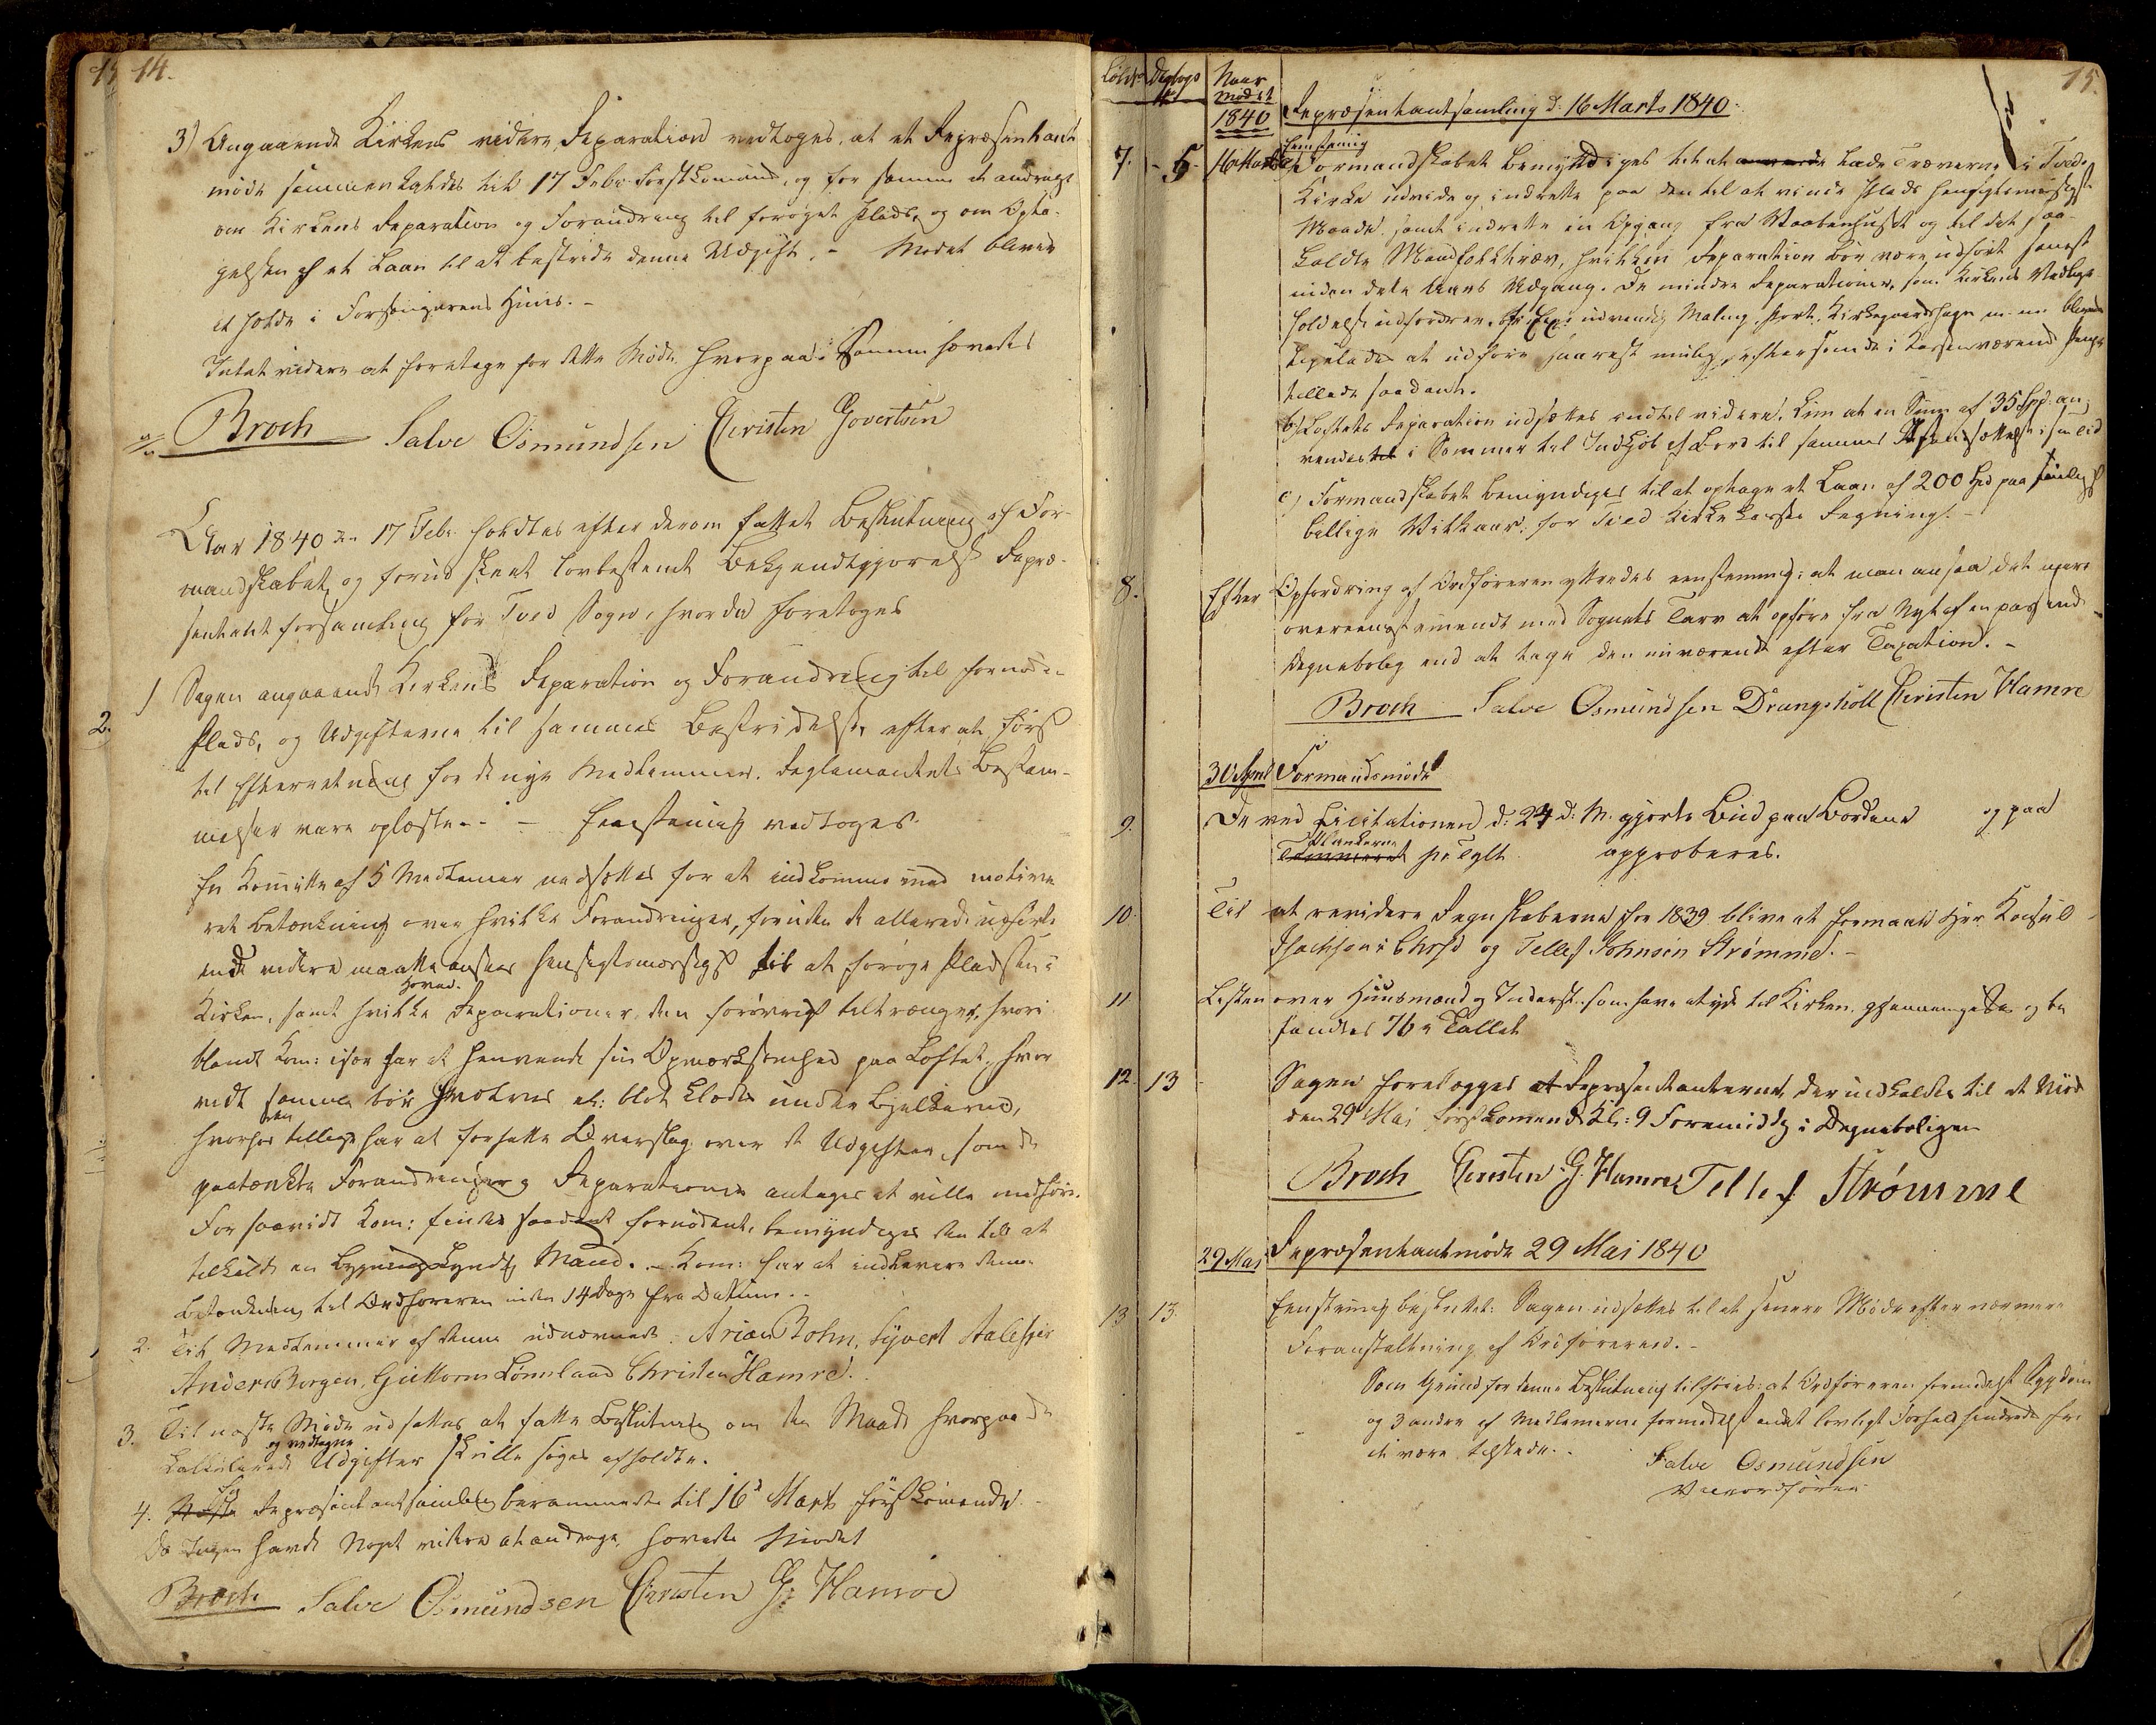 14.
3) Angaaende Kirkens videre Reparation vedtoges, at et Repræsentant
møde sammenkaldes til 17 Febr. førstkommend, og for samme at andrage
om Kirkens Reparation og Forandring til forøget Plads, og om Opta-
gelsen af et Laan til at bestride denne Udgift. - Mødet bliver
at holde i Forsangerens Huus. -
Intet videre at foretage for dette Møde, hvorpaa Samme hævedes
Broch Salve Osmundsen Christen Govertsen
Aar 1840 den 17 Febr. holdtes efter derom fattet Beslutning af For-
mandskabet, og forud skeet lovbestemt Bekjendtgjørelse Repræ-
sentantforsamling for Tved Sogn, hvorda foretoges
1 Sagen angaaende Kirkens Reparation og Forandring til fornøden
2.
Plads, og Udgifterne til sammes Bestridelse, efter at først
til Efterretning for de nye Medlemmer Reglementets Bestem-
melser vare oplæste. - Eenstemmig vedtoges
En Komitte af 5 Medlemer nedsættes for at indkomme med motive
ret Betænkning over hvilke Forandringer, foruden de allerede
end videre maatte ansees hensigtsmæssigst til at forøge Pladsen i
Hoved-
Kirken, samt hvilke Reparationer den forøvrigt tiltrænger, hvori
blandt Kom: især har at henvende sin Opmærksomhed paa Loftet, hvor
vidt samme bør el: blot klædes under Bjelkerne,
den
hvorhos tillige har at forfatte Overslag over de Udgifter, som de
paatænkte Forandringer og Reparationer antages at ville medføre.
For saavidt Kom: finder saadant fornødent, bemyndiges den til at
tilkalde en bygningskyndig Mand. - Kom: har at indlevere denne
Betænkning til Ordføreren inden 14 Dage fra Datum. -
2. Til Medlemmer af denne udnævnedes: Arian Bohn, Syvert Aalefjær
Anders Borgen, Guttorm Lønnland Christen Hamre.
3. Til næste Møde udsættes at fatte Beslutning om den Maade hvorpaa de
og vedtagne
kalkulerede Udgifter skulle søges afholdte.
4. Næste Repræsentantsamling berammedes til 16de Marts førstkomende
Da Ingen havde Noget videre at andrage, hævedes Mødet
Broch Salve Osmundsen Christen G: Hamre
15.
Løbe Dagbogs Naar
No Mødet
1840
Repræsentantsamling d: 16 Marts 1840.
Eenstemig
7. 5. 16 Marts a) Formandskabet bemyndiges til at lade Træverne i Tveds
Kirke udvide og indrette paa den til at vinde Plads hensigtsmæssigste
Maade, samt indrette en Opgang fra Vaabenhuset og til det saa-
kaldte Mandfolktræv, hvilken Reparation bør være udført senest
inden dete Aars Udgang. De mindre Reparationer, som Kirkens Vedlige-
holdelse udfordrer, udvendig Maling, Port, Kirkegaardshegn m. m.
at udføre snarest mulig, eftersom de i Kassen værende Penge
tillade saadant.
b) Loftets Reparation udsættes indtil videre. Kun at en Sum af 35 Spd: an-
vendes i Sommer til Indkjøb af Bord til sammes
c) Formandskabet bemyndiges til at optage et Laan af 200 Spd paa
billige Vilkaar for Tved Kirkekasses Regning. -
8. Efter Opfordring af Ordføreren yttredes eenstemmig: at man ansaa det mere
overeenstemmende med Sognets Tarv at opføre fra Nyt af en passende
Degnebolig end at tage den nuværende efter Taxation. -
Broch Salve Osmundsen Drangsholt Christen Hamre
30 April Formandsmøde
9. De ved Licitationen d: 24 d: M. gjorte Bud paa Bordene og paa
Plankerne
Tømmeret pr Tylt approberes.
10. Til at revidere Regnskaberne for 1839 blive at formaae Hr Konsul
Isachsen i Chrsd og Tellef Johnsen Strømme. -
11 Listen over Huusmænd og Inderster som have at yde til Kirken, gjennemgikes og be
fandtes 76 i Tallet
12. 13 Sagen forelægges Repræsentanterne, der indkaldes til et Møde
den 29 Mai førstkomende Kl: 9 Formiddg i Degneboligen
Broch Christen G. Hamre Tellef Strømme
29 Mai Repræsentantmøde 29 Mai 1840
13 13. Eenstemig besluttet: Sagen udsættes til et senere Møde efter nærmere
Foranstaltning af Ordføreren. -
Som Grund for denne Beslutning tilføies: at Ordføreren formedelst Sygdom
og 3 andre af Medlemerne formedelst andet lovligt Forfald hindredes fra
at være tilstede. -
Salve Osmundsen
Viceordfører